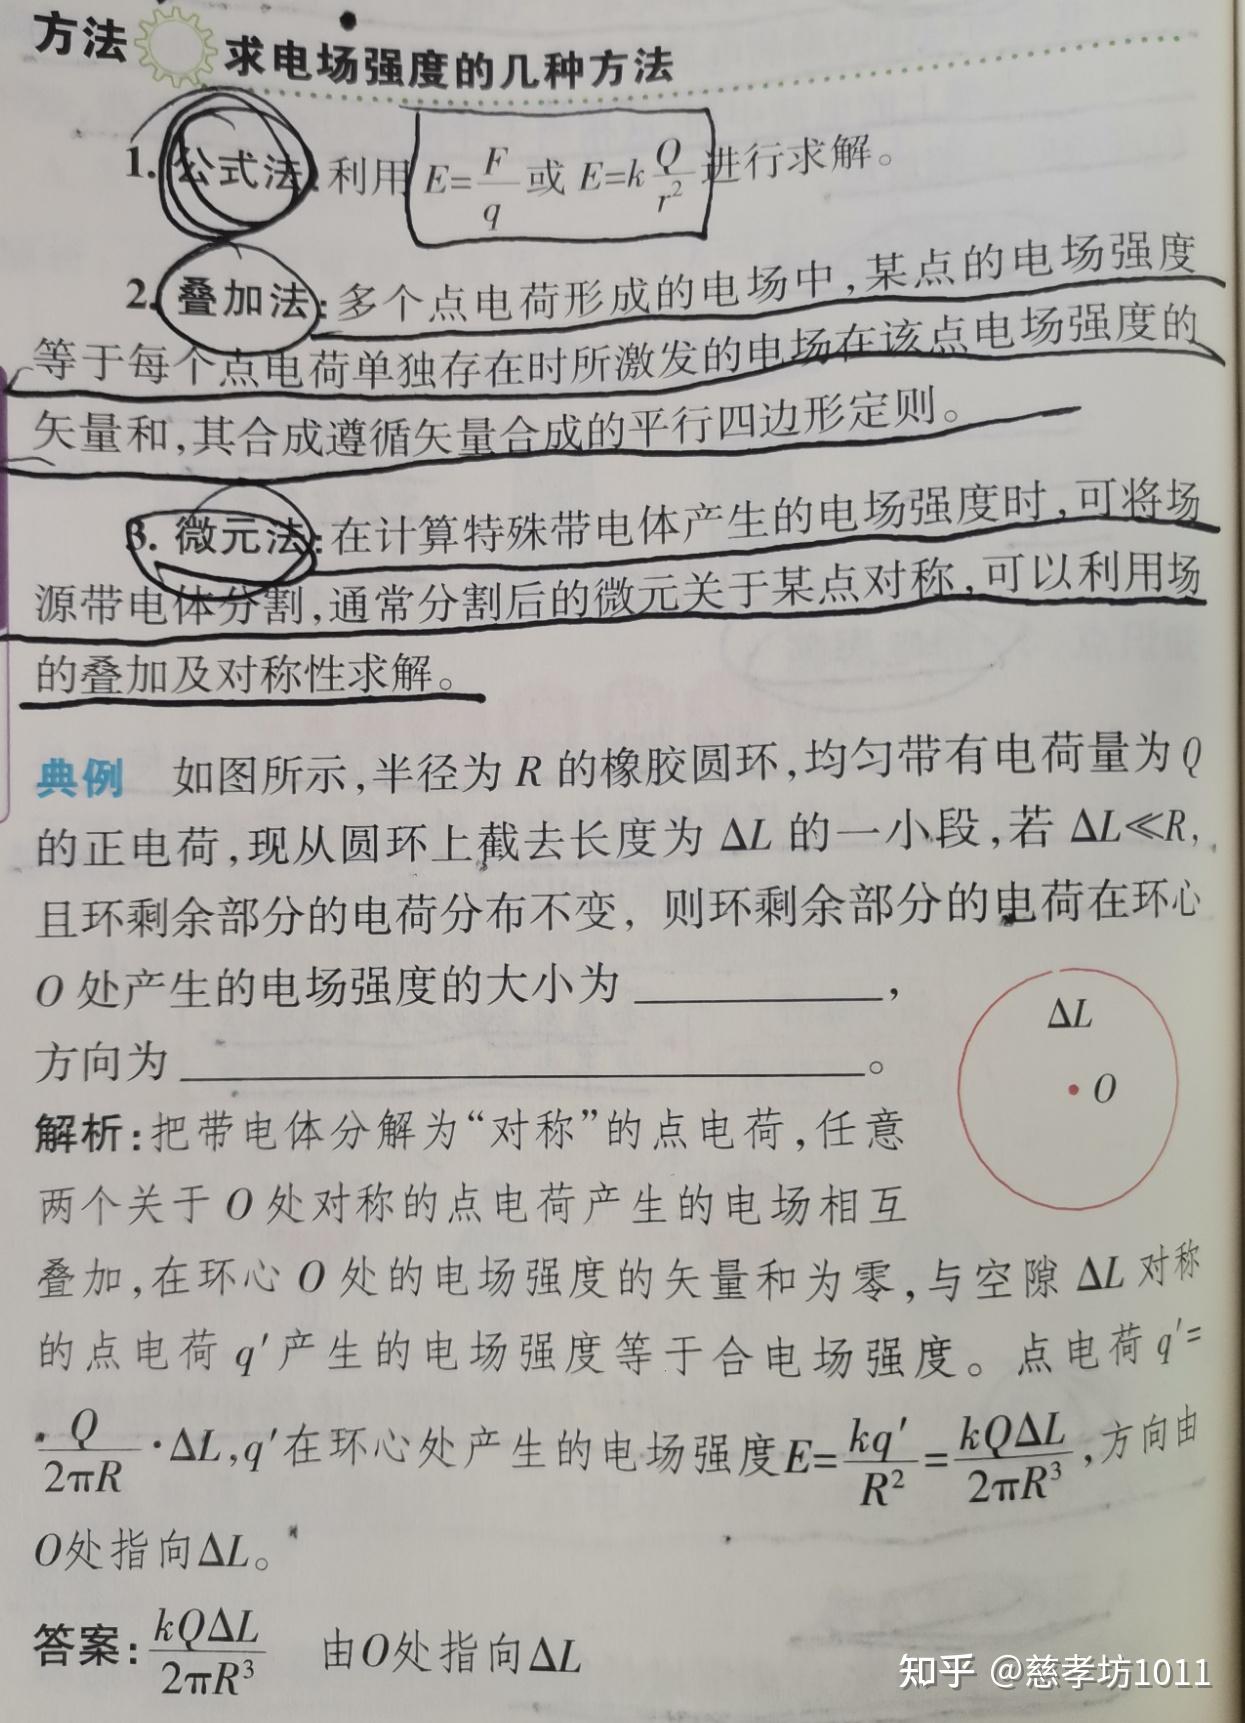 方法 求电场强度的几种方法
1. 公式法:利用 E=F/q 或 E=kQ/r² 进行求解。
2. 叠加法:多个点电荷形成的电场中,某点的电场强度
等于每个点电荷单独存在时所激发的电场在该点电场强度的
矢量和,其合成遵循矢量合成的平行四边形定则。
3. 微元法:在计算特殊带电体产生的电场强度时,可将场
源带电体分割,通常分割后的微元关于某点对称,可以利用场
的叠加及对称性求解。
典例 如图所示,半径为 R 的橡胶圆环,均匀带有电荷量为 Q
的正电荷,现从圆环上截去长度为 ΔL 的一小段,若 ΔL≪R,
且环剩余部分的电荷分布不变, 则环剩余部分的电荷在环心
O 处产生的电场强度的大小为 ________,
方向为 ________________。
ΔL
O
解析:把带电体分解为“对称”的点电荷,任意
两个关于 O 处对称的点电荷产生的电场相互
叠加,在环心 O 处的电场强度的矢量和为零,与空隙 ΔL 对称
的点电荷 q′产生的电场强度等于合电场强度。点电荷 q′=
Q/2πR·ΔL,q′在环心处产生的电场强度E=kq′/R²=kQΔL/2πR³,方向由
O处指向ΔL。
答案:kQΔL/2πR³ 由O处指向ΔL
知乎 @慈孝坊1011